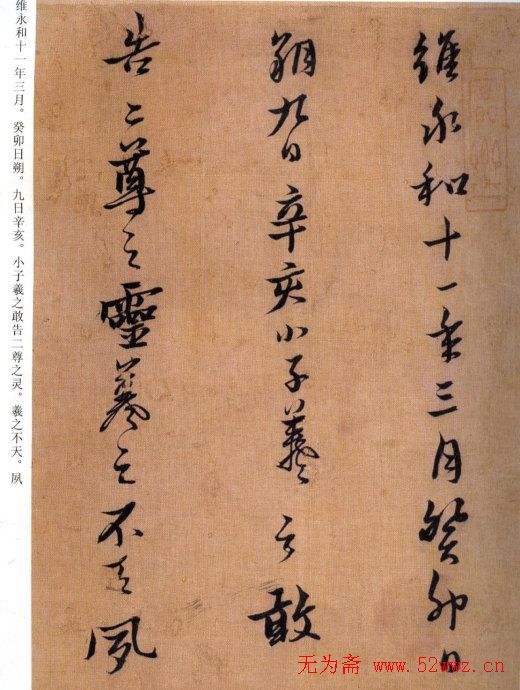 維永和十一年三月癸卯日
朔九日辛亥小子羲之敢
告二尊之靈羲之不天夙
维永和十一年三月。癸卯日朔。九日辛亥。小子羲之敢告二尊之灵。羲之不天。夙
无为斋 www.52wwz.cn